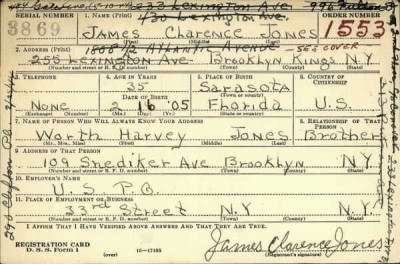 233 Lexington Ave
430 Lexington Ave.
SERIAL NUMBER 1. NAME (Print) ORDER NUMBER
3869 James Clarence Jones 1553
(First) (Middle) (Last)
1806 1/2 Atlantic Avenue - SEE COVER
2. ADDRESS (Print)
255 Lexington Ave Brooklyn Kings N.Y.
(Number and street or R. F. D. number) (Town) (County) (State)
3. TELEPHONE 4. AGE IN YEARS 5. PLACE OF BIRTH 6. COUNTRY OF CITIZENSHIP
35 Sarasota
DATE OF BIRTH (Town or county)
None 2 16 '05 Fhorida U.S.
(Exchange) (Number) (Mo.) (Day) (Yr.) (State or country)
7. NAME OF PERSON WHO WILL ALWAYS KNOW YOUR ADDRESS 8. RELATIONSHIP OF THAT PERSON
Worth Harvey Jones Brother
(Mr., Mrs., Miss) (First) (Middle) (Last)
9. ADDRESS OF THAT PERSON
109 Snediker Ave Brooklyn N.Y.
(Number and street or R. F. D. number) (Town) (County) (State)
10. EMPLOYER'S NAME
U. S. P. O.
11. PLACE OF EMPLOYMENT OR BUSINESS
33rd Street N.Y. N.Y.
(Number and street or R. F. D. number) (Town) (County) (State)
I AFFIRM THAT I HAVE VERIFIED ABOVE ANSWERS AND THAT THEY ARE TRUE.
REGISTRATION CARD
D. S. S. Form 1 (over) 16-17105 James Clarence Jones
(Registrant's signature)
290 Clifton Pl.